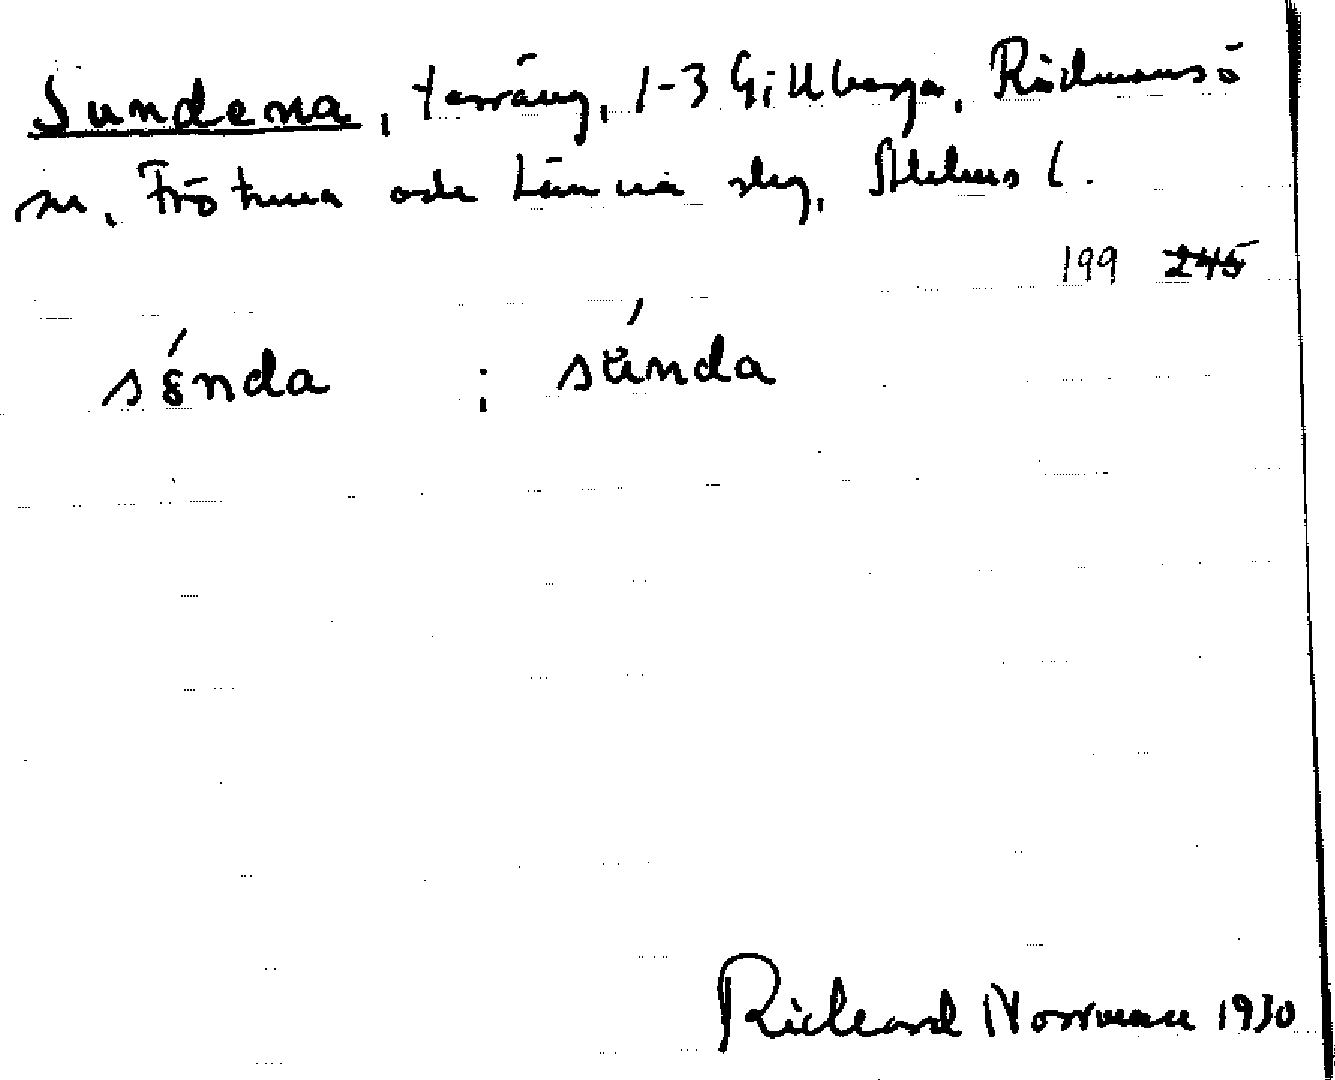 Sundena, terräng, 1-3 Gillberga, Rådmansö
sn, Frötuna och Länna skg, Sthlms l.
199 245
sǿnda ; súnda
Richard Norrman 1930